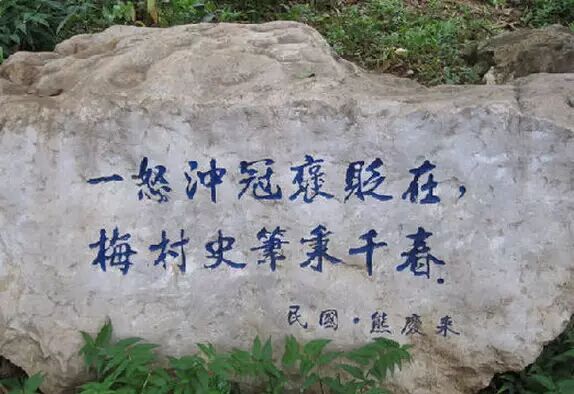 一怒沖冠褒貶在，
梅村史筆秉千春．
民國·熊慶來